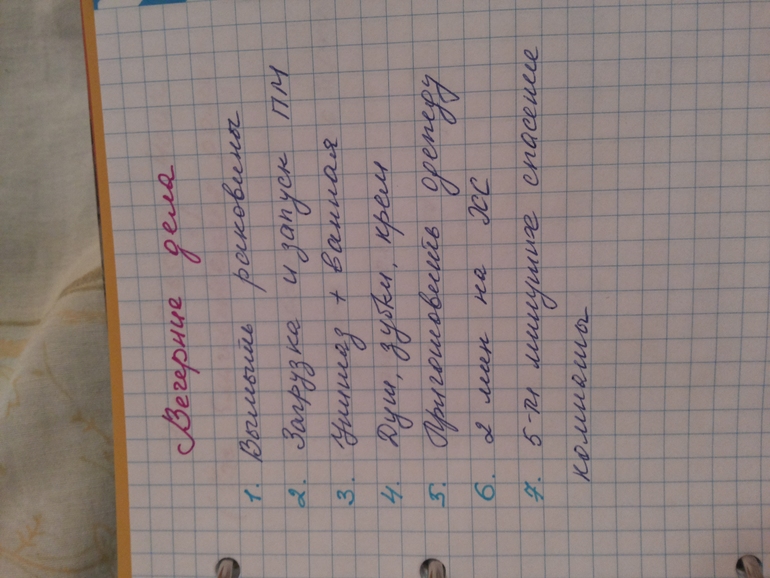 Вечерние дела
1. Вымыть раковины
2. Загрузка и запуск ПМ
3. Унитаз + ванная
4. Душ, зубки, крем
5. Приготовить одежду
6. 2 мин на ХС
7. 5-ти минутное спасение
комнаты